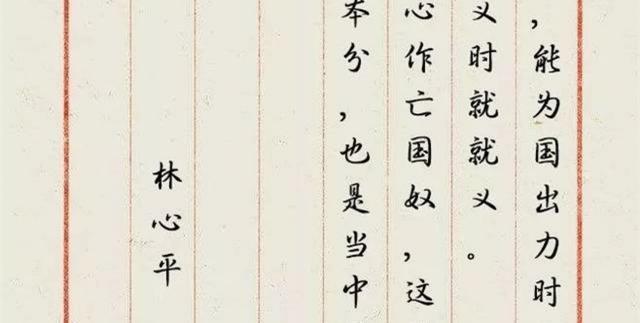 ，能为国出力时
义时就就义。
心作亡国奴，这
本分，也是当中
林心平